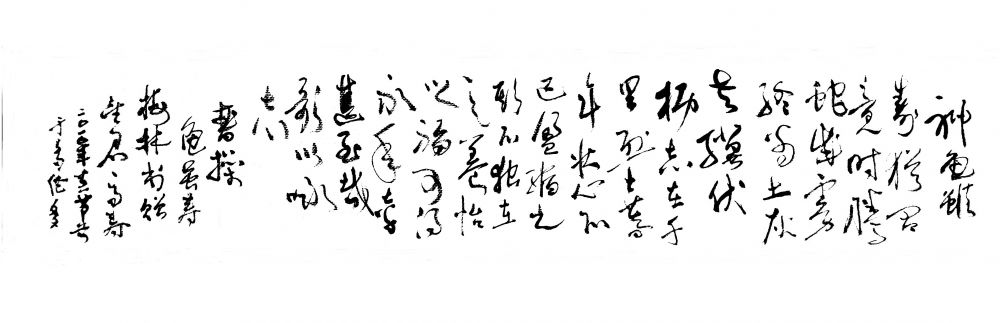 神龟虽
寿犹有
竟时腾
蛇成雾
终为土灰
老骥伏
枥志在千
里烈士暮
年壮心不
已盈缩之
期不独在
天养怡
之福可得
永年幸
甚至哉
歌以咏
志
曹操
龟虽寿
梅林书赠
君高寿